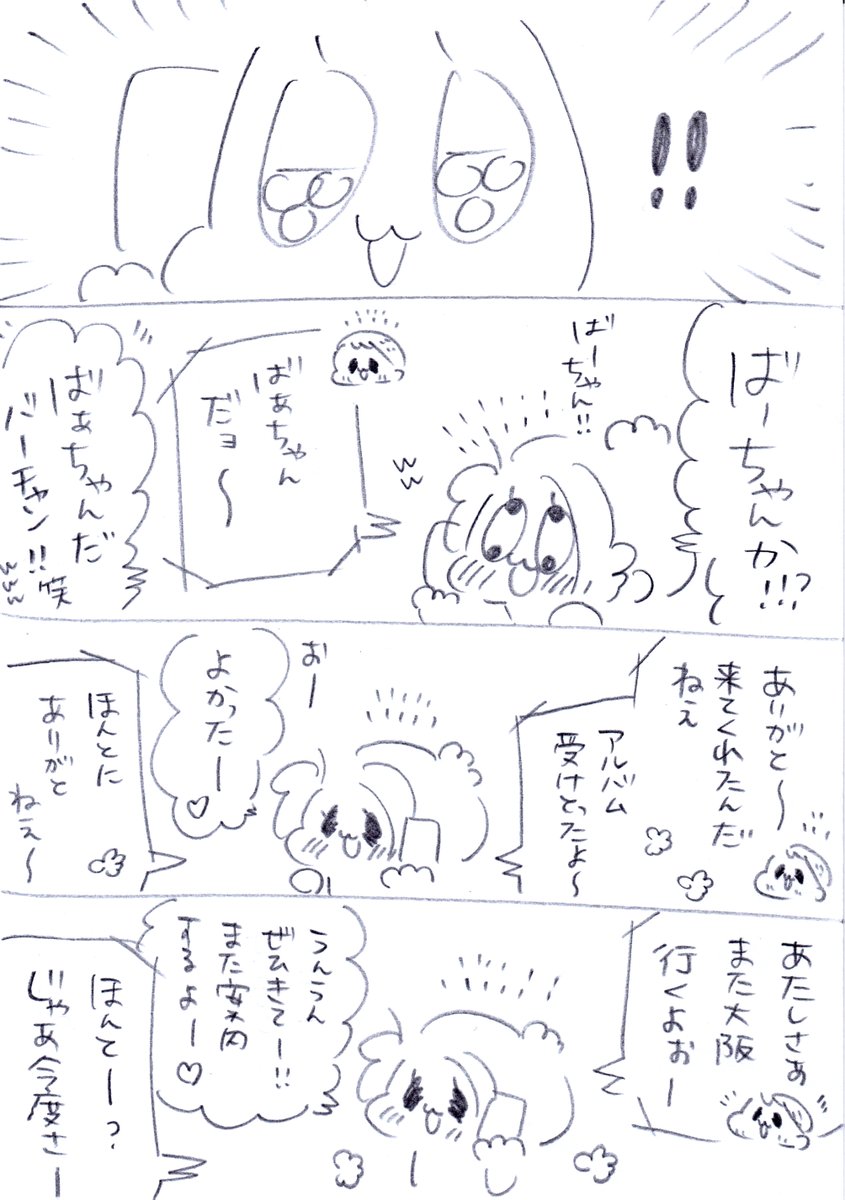 !!
ばーちゃんか!!?
ばーちゃん!!
ww
ばぁちゃん
だョ〜
ばぁちゃんだ
バーチャン!!笑
www
ありがと〜
来てくれたんだ
ねぇ
アルバム
受けとったよ〜
おー
よかったー♡
ほんとに
ありがと
ねぇ〜
あたしさぁ
また大阪
行くよぉー
うんうん
ぜひきてー!!
また案内
するよー♡
ほんてー?
じゃあ今度さー